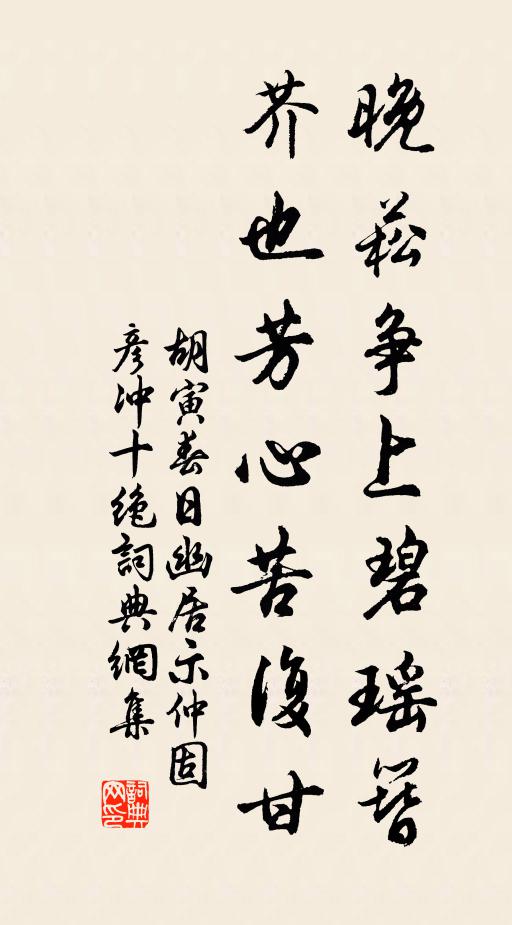 晚菘争上碧瑶簪
芥也芳心苦復甘
胡寅春日幽居示仲固
彦冲十絶詞典網集
詞典網印